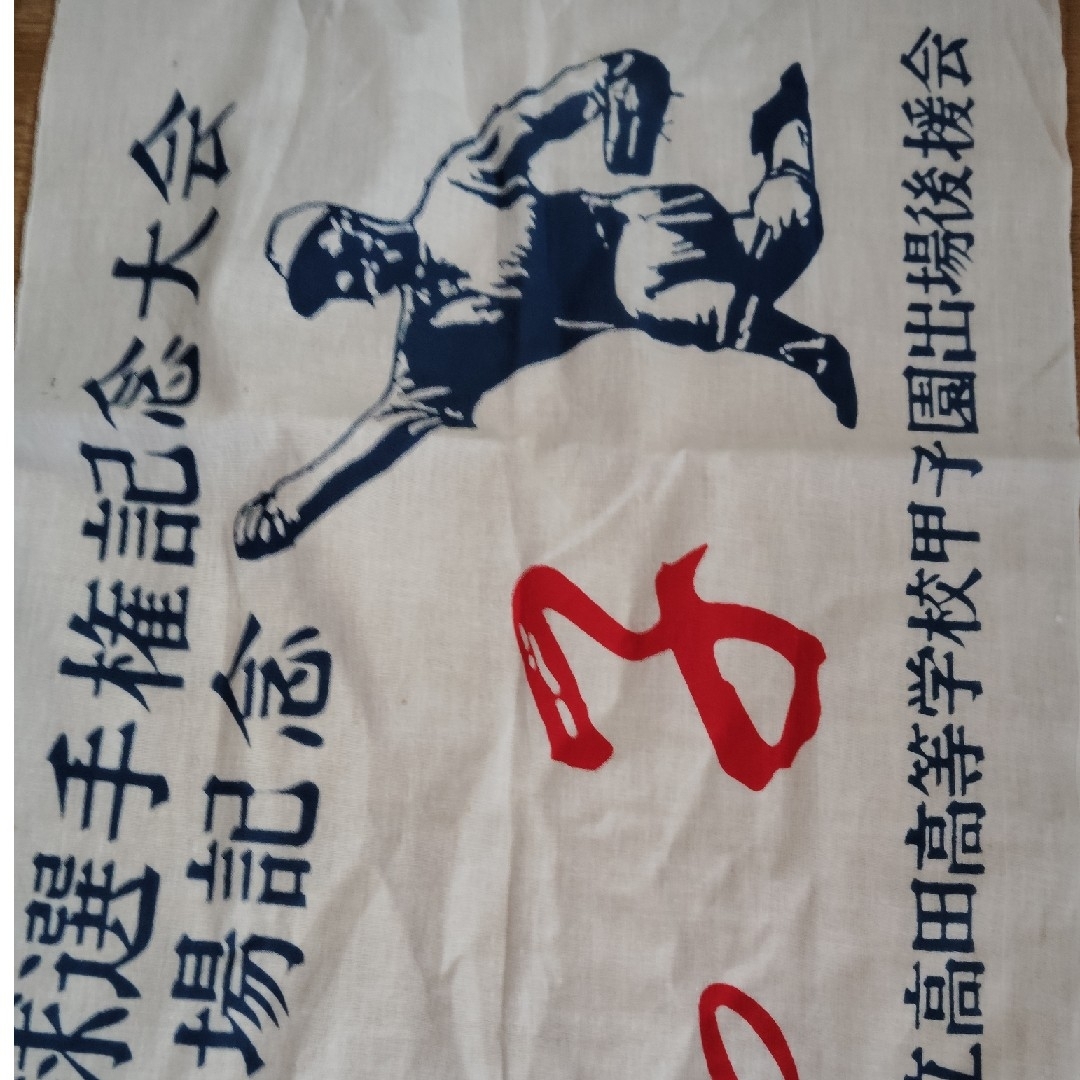 球選手権記念大会
場記念
立高田高等学校甲子園出場後援会